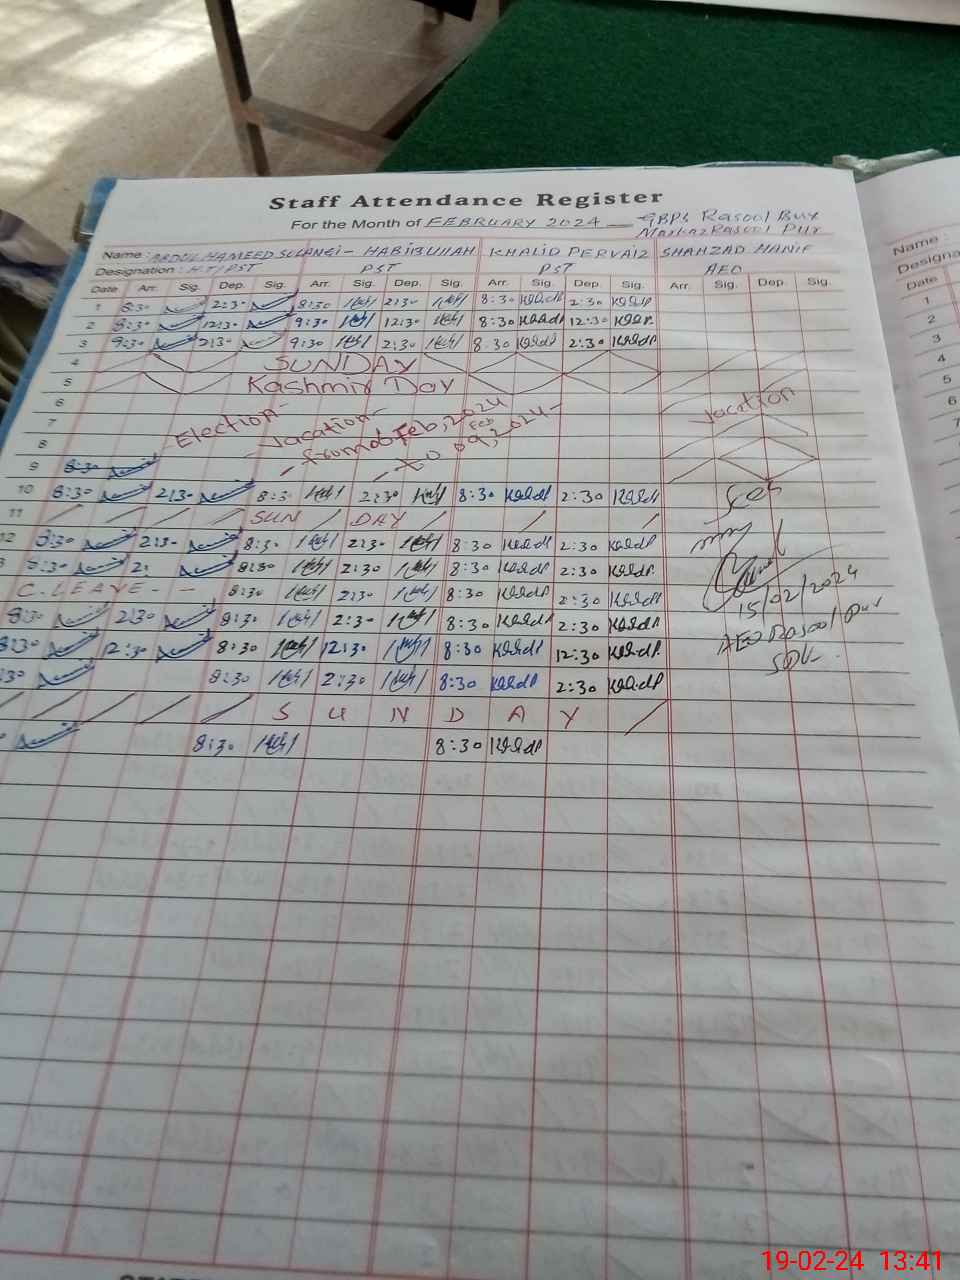 Staff Attendance Register
For the Month of FEBRUARY 2024 GBPS Rasool Bux
Markaz Rasool Pur
Name : ABDUL HAMEED SOLANGI - HABIBULLAH KHALID PERVAIZ SHAHZAD HANIF
Designation : H.T/PST PST PST AEO
Date Arr. Sig. Dep. Sig. Arr. Sig. Dep. Sig. Arr. Sig. Dep. Sig. Arr. Sig. Dep. Sig.
1 8:30 2:30 8:30 2:30 8:30 2:30
2 8:30 12:30 9:30 12:30 8:30 12:30
3 9:30 2:30 9:30 2:30 8.30 2:30
4 SUNDAY
5 Kashmir Day
6 Vacation
7 Election - Vacation -
8 from 06 Feb, 2024
9 8:30 to 09, Feb 2024 -
10 8:30 2:30 8:30 2:30 8:30 2:30 Seen
11 SUN DAY
12 8:30 2:30 8:30 2:30 8:30 2:30
3 8:30 2: 8:30 2:30 8:30 2:30
C. LEAVE - - 8:30 2:30 8:30 2:30 15/02/2024
8:30 2:30 8:30 2:30 8:30 2:30 AEO Rasool Pur
8:30 12:30 8:30 12:30 8:30 12:30 SDK
:30 8:30 2:30 8:30 2:30
S U N D A Y
8:30 8:30
Name :
Designa
Date
1
2
3
4
5
6
7
19-02-24 13:41